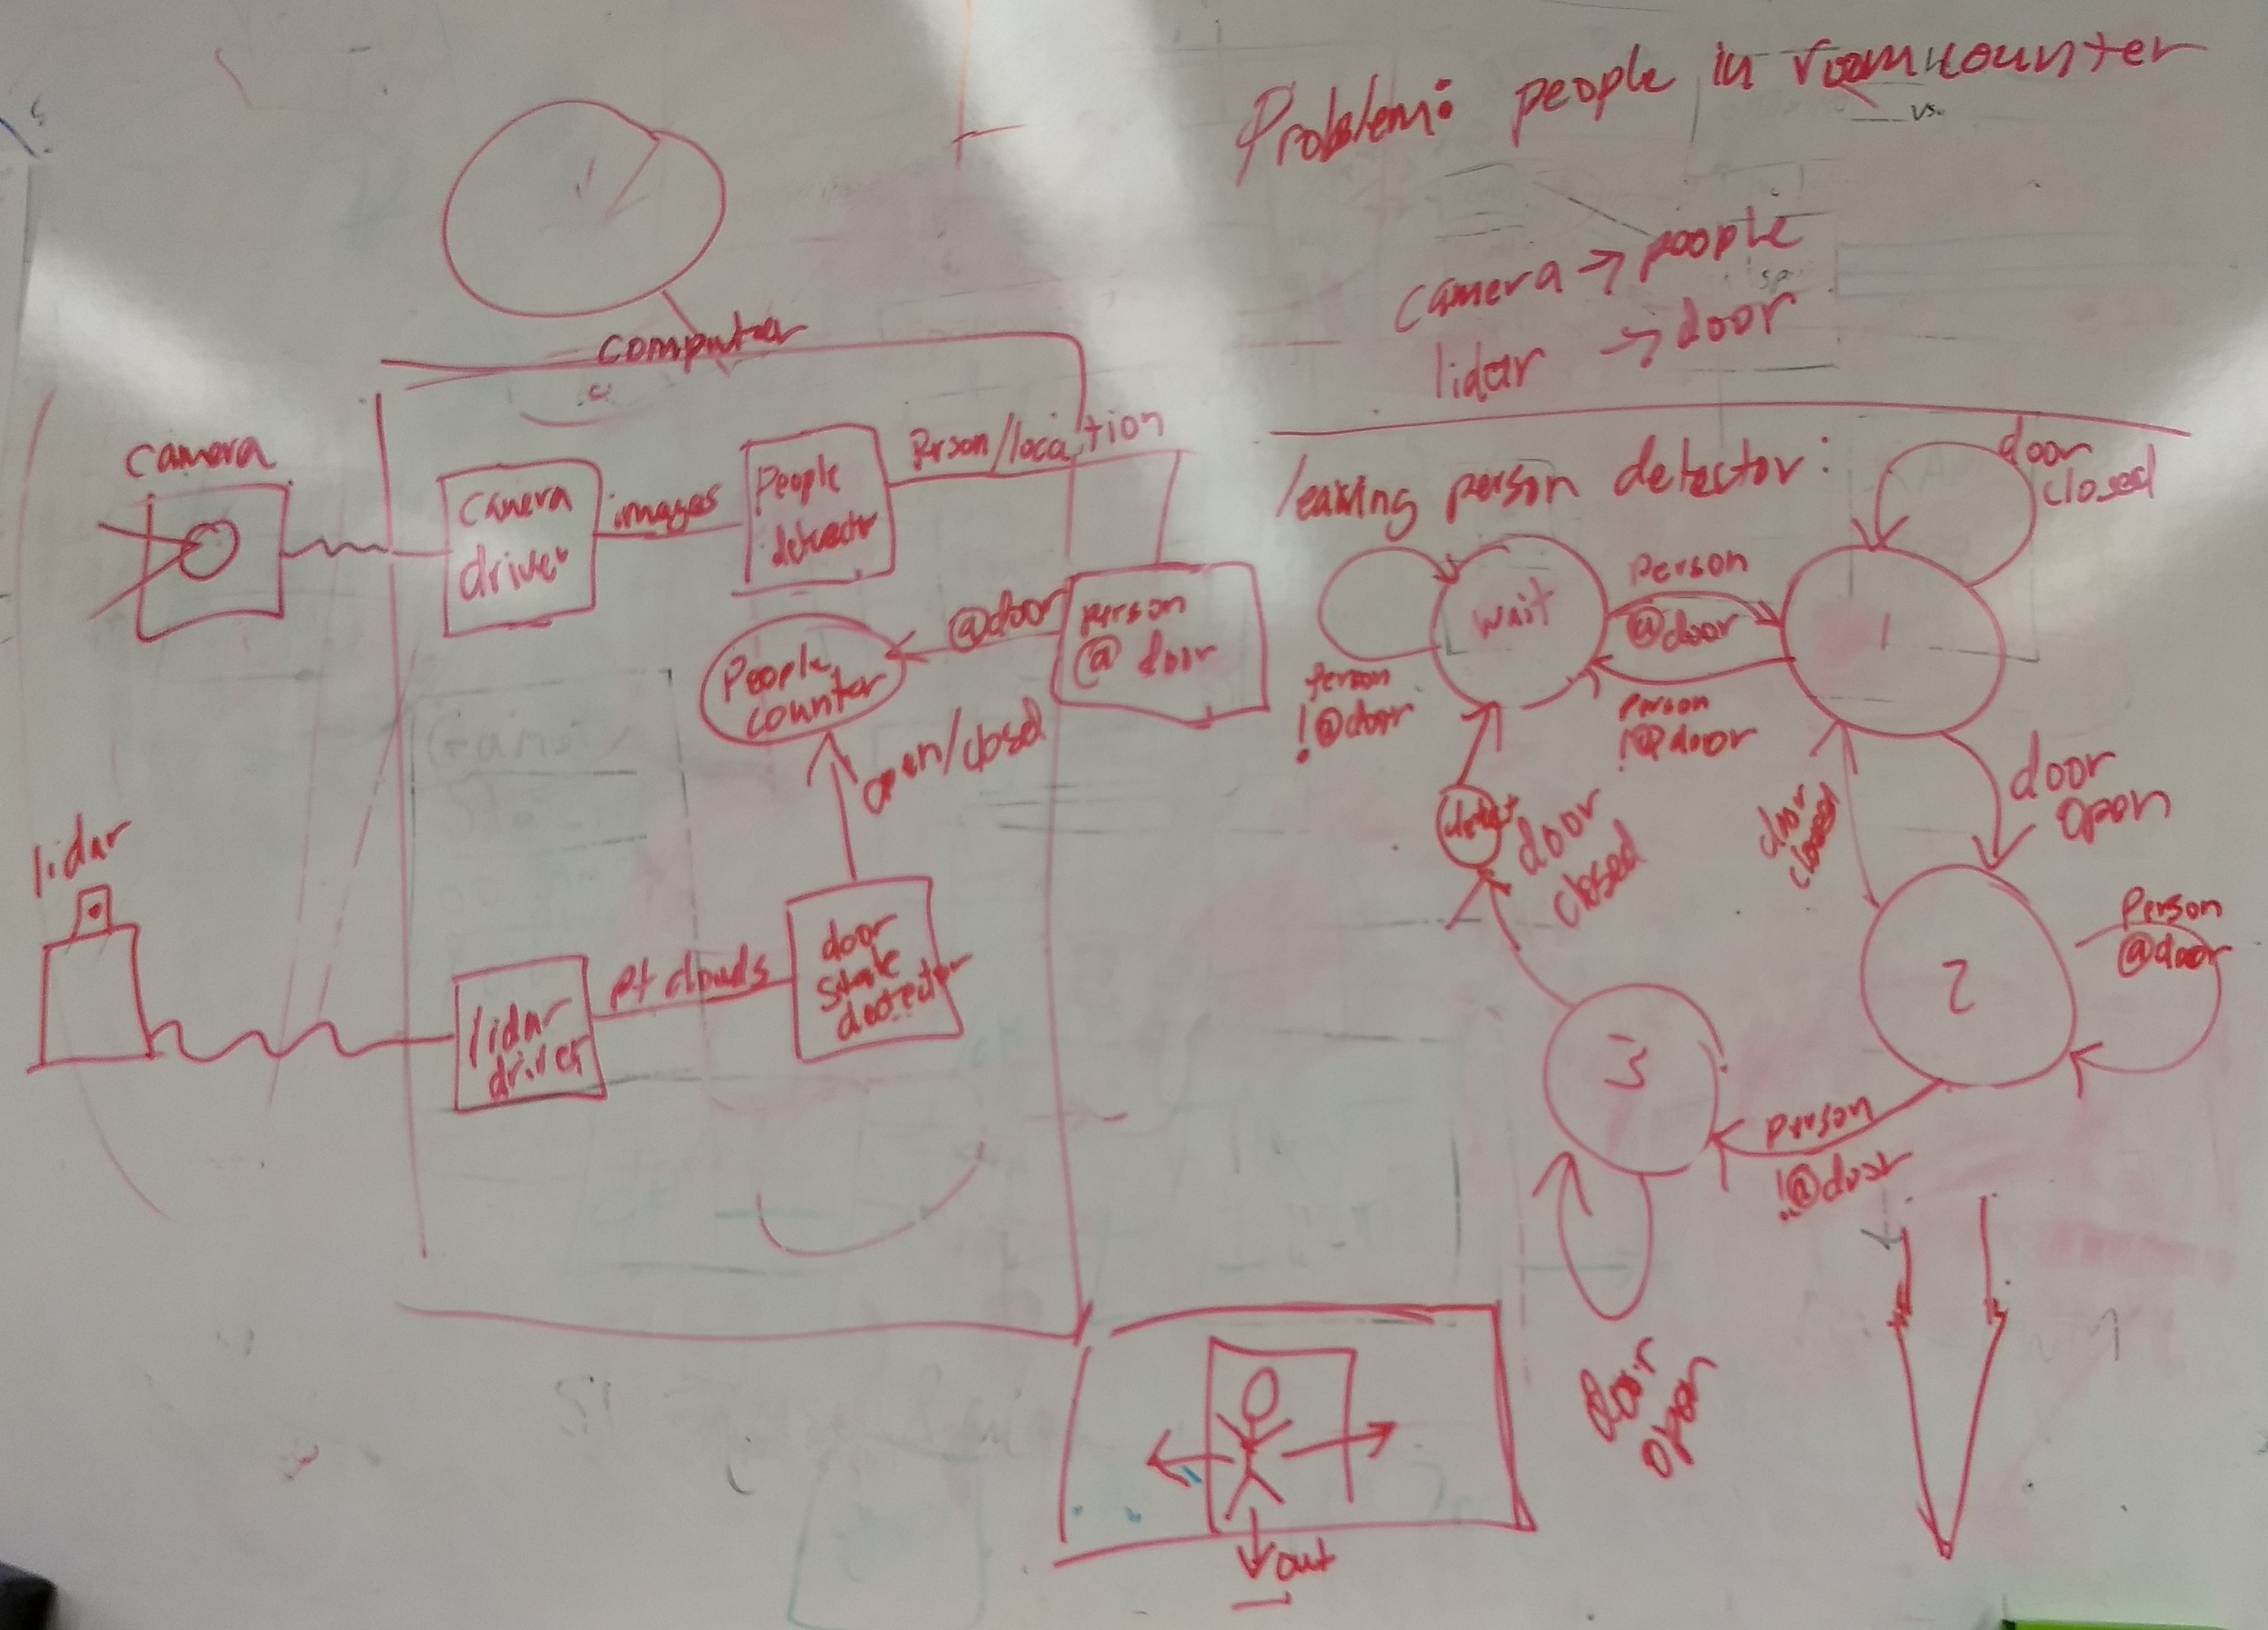 Problem: people in room counter
vs.
camera → people
lidar → door
computer
camera
camera
driver
images
People
detector
Person/location
person
@ door
@door
People
counter
open/closd
lidar
lidar
driver
pt clouds
door
state
detector
out
leaving person detector:
door
closed
wait
person
@door
1
person
!@door
person
!@door
door
open
door
closed
door
closed
2
person
@door
3
person
!@door
door
open